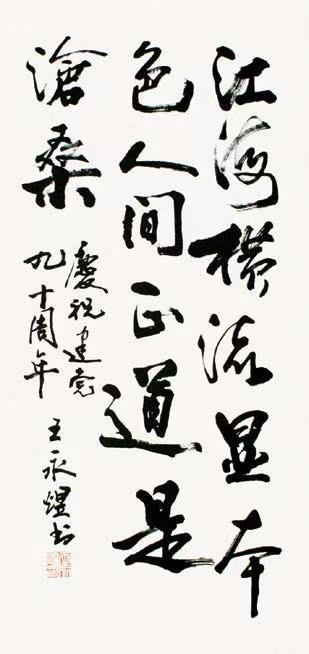 江海横流显本
色人间正道是
滄桑
慶祝建党
九十周年
王永书